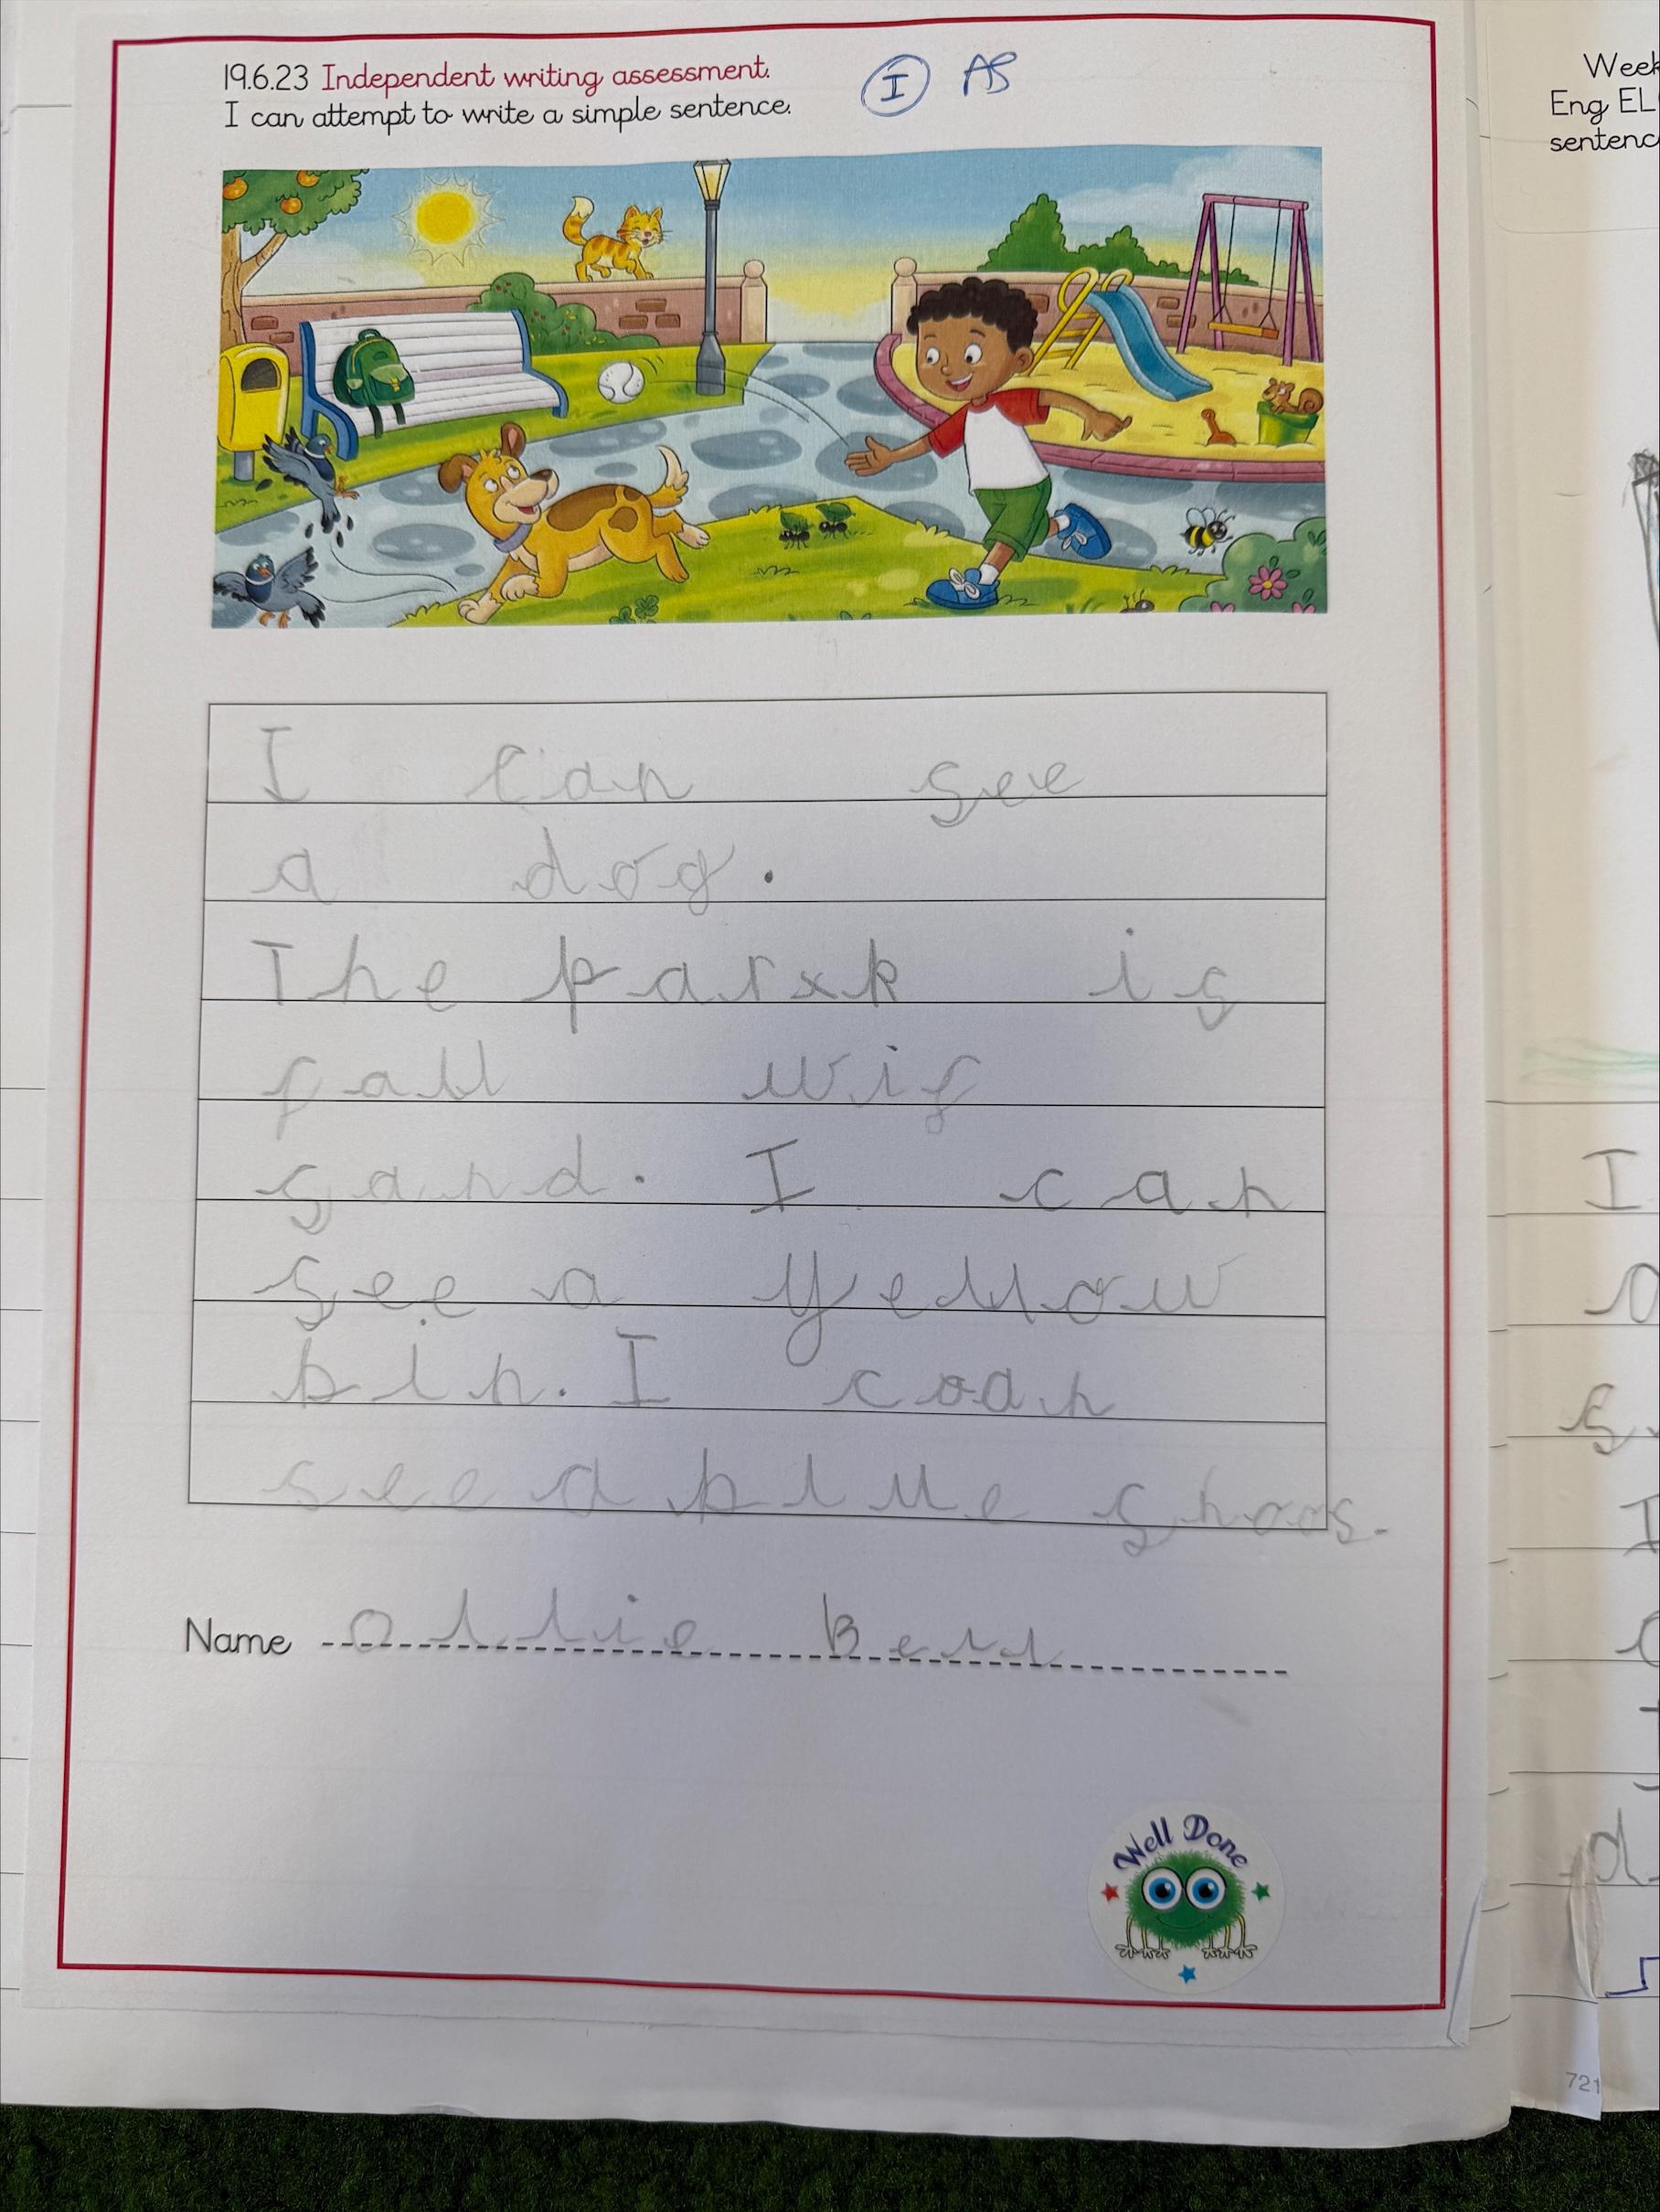 19.6.23 Independent writing assessment.
I can attempt to write a simple sentence.
I AS
I can see
a dog.
The parxk is
fall wif
sand. I can
see a yellow
bin. I coan
see a blue shoos.
Name ollie Bell
Well Done
Week
Eng EL
sentenc
I
721